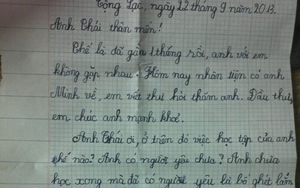 Cộng Lạc, ngày 22 tháng 9 năm 2013.
Anh Thái thân mến!
Thế là đã gần 1 tháng rồi, anh với em
không gặp nhau. Hôm nay nhân tiện có anh
Minh về, em viết thư hỏi thăm anh. Đầu thư,
em chúc anh mạnh khoẻ.
Anh Thái ơi, ở trên đó việc học tập của anh
thế nào? Anh có người yêu chưa? Anh chưa
học xong mà đã có người yêu là bố ghét lắm